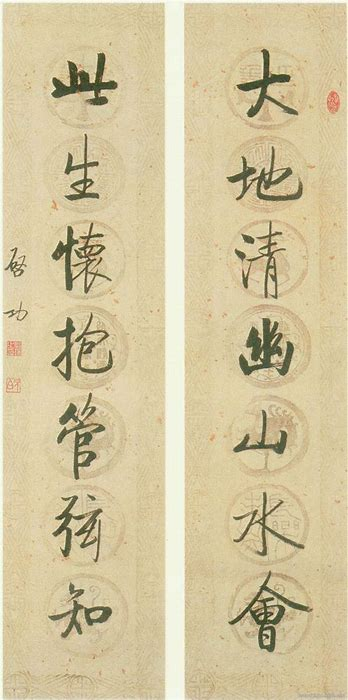 大地清幽山水會
此生懷抱管弦知
啓功